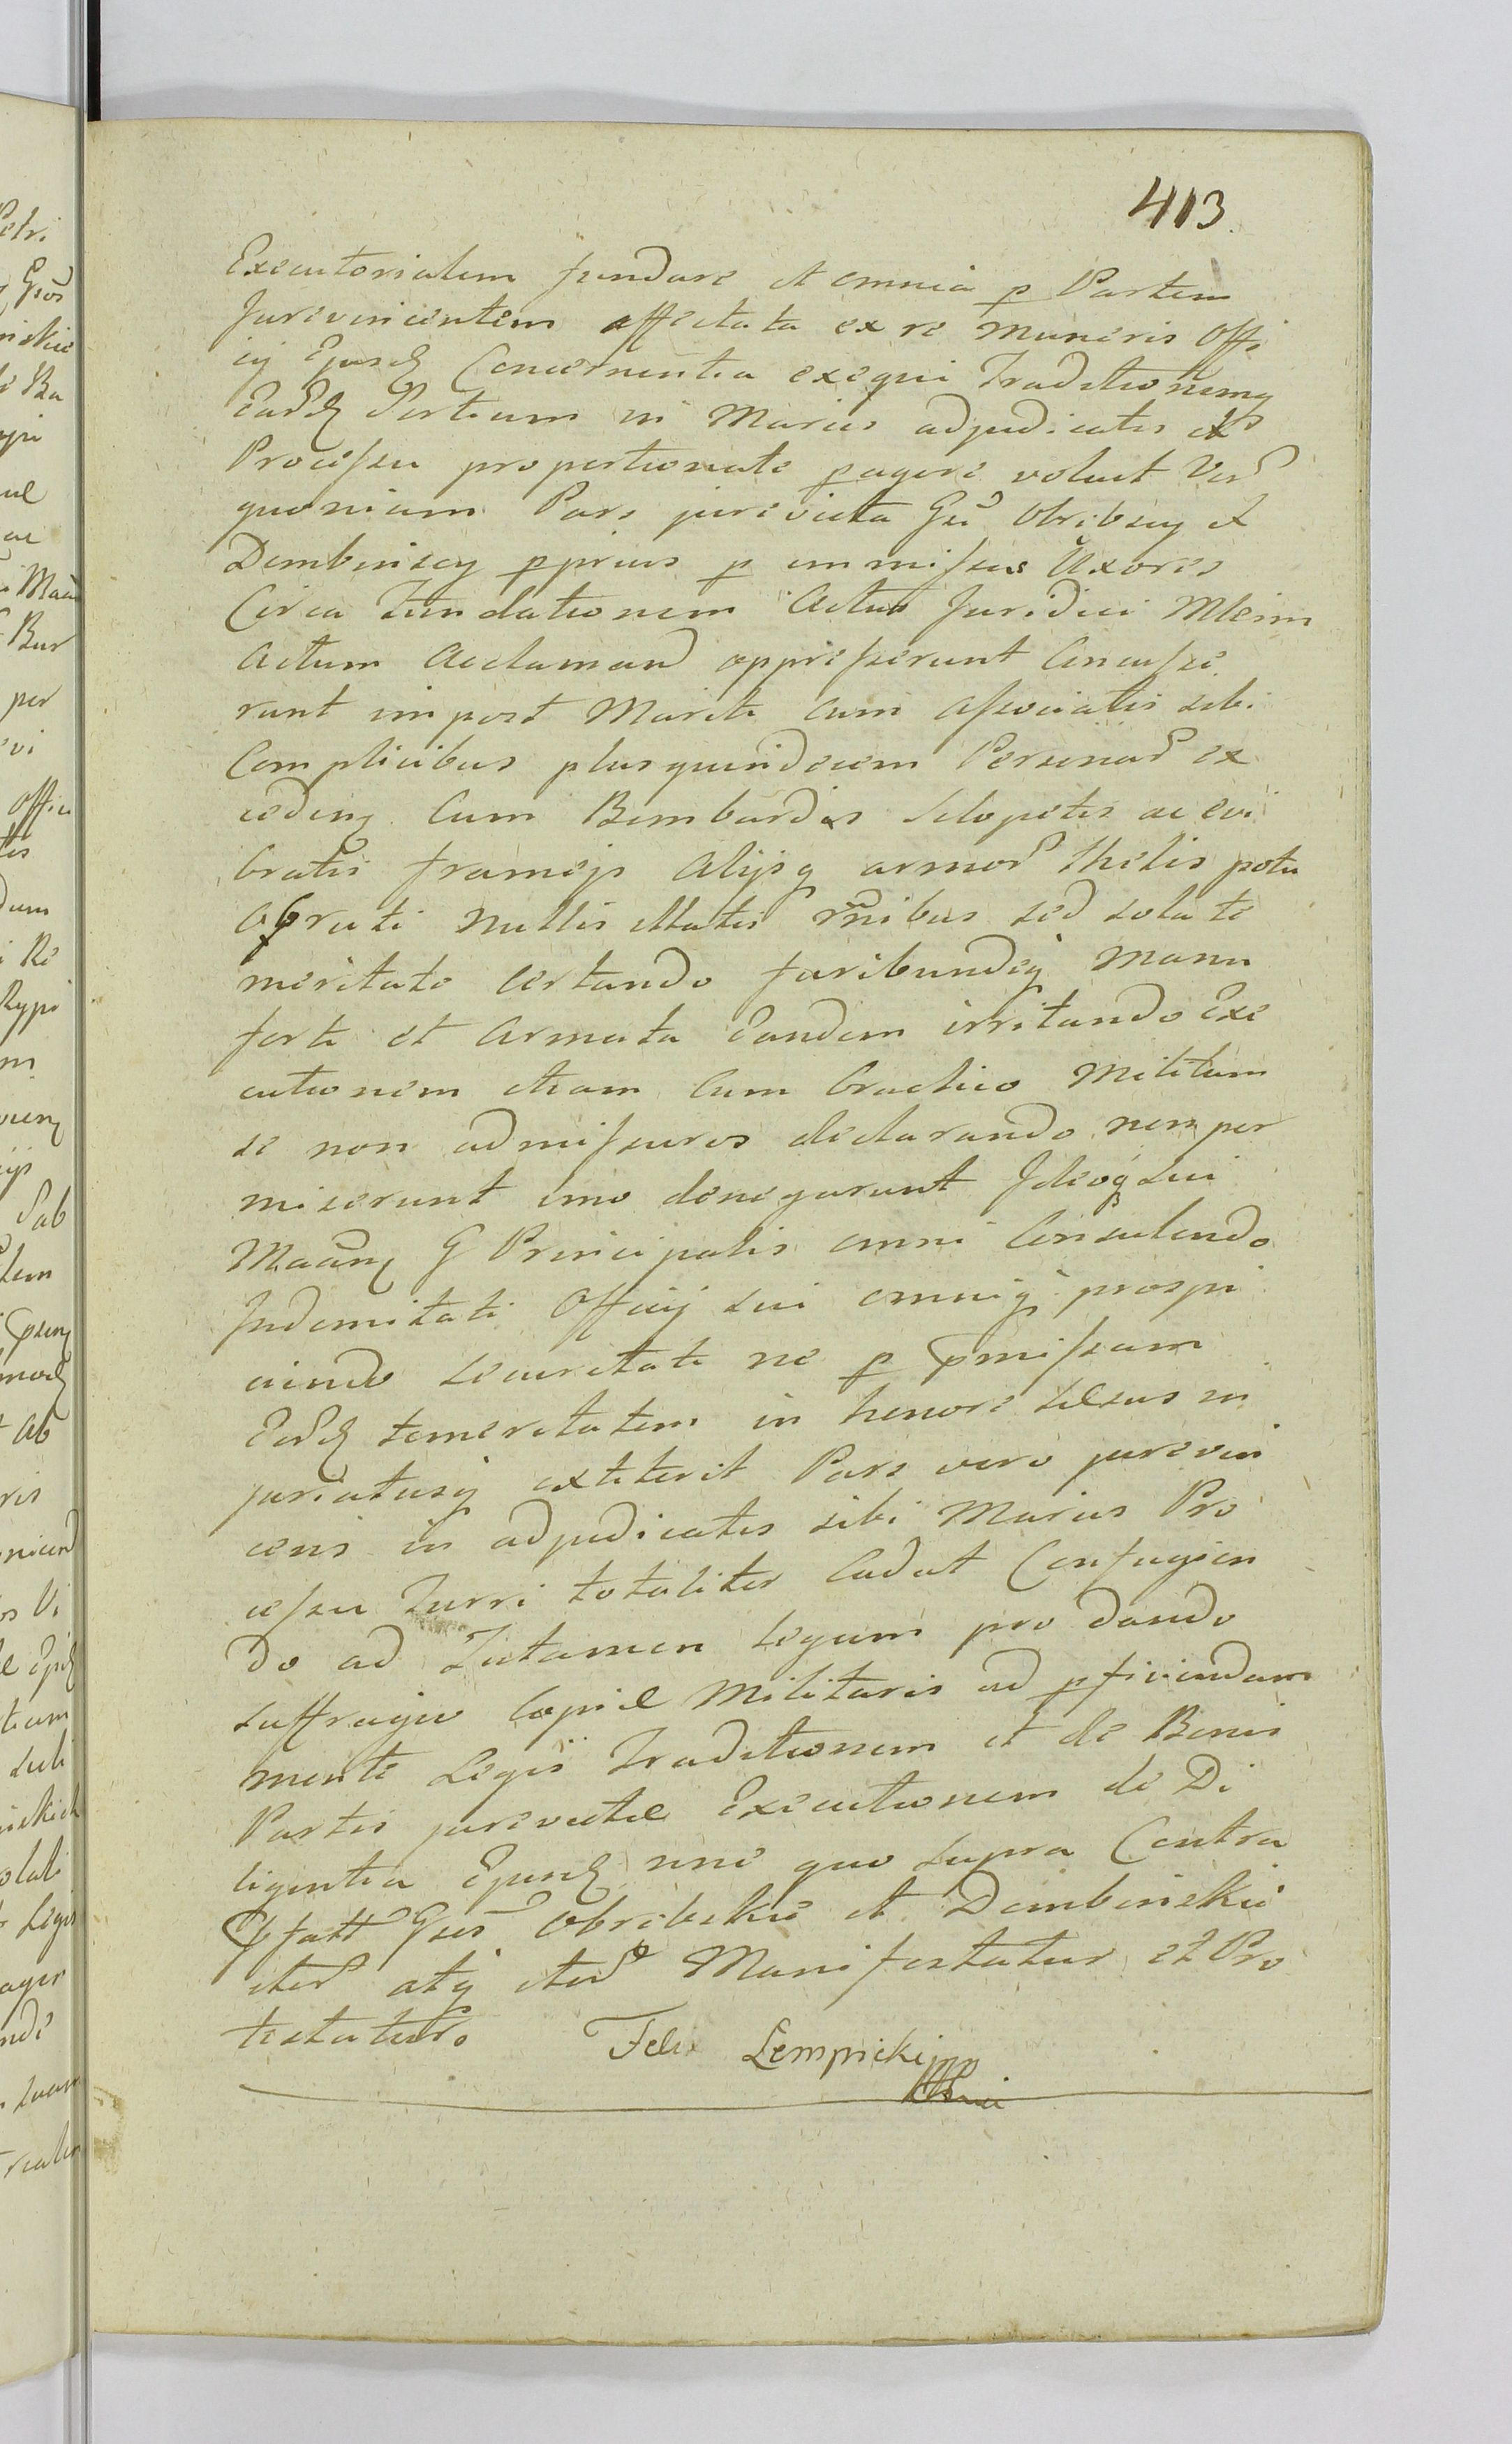 413.
Executorialem fundare et omnia p Partem
Jurevincentem affectata ex re Muneris Offi
cij Ejusd Concernentia exequi Traditionemq
Eard Sortium in Marcis adjudicatis et
Processu proportionate pagere voluit Ver
quoniam Pars jurevicta Gsi Obribscy et
Dembinscy pprius p immissas Uxores
Circa fundationem Actus Juridici Mlem
Actum Acclamand oppresserunt Concusse
runt impost Mariti cum associatis sibi
Complicibus plusquindecem Personar ex
ceden Cum Bombardis Sclopetis ac evi
bratis frameis Alijsq armor thelis potu
Obruti Nullis illatis rnibus sed sola te
meritate certando furibundeq Manu
forti et Armata Eandem irritando Exe
cutionem etiam Cum brachio Militum
se non admissuros declarando non per
miserunt imo denegarunt Ideoq sui
G Principalis omni Consulendo
Indemnitati Officij sui omniq prospi
ciendo securitati ne p pmissam
Eord temeritatem in honore suo in
juriatusq extiterit Pars vero jurevin
cens in adjudicatis sibi Marcis Pro
cessu Jurri totaliter Cadat Confugien
do ad Tutamen Legum pro dando
suffragio Copiæ Militaris ad pficiendam
mente Legis Traditionem et de Bonis
Partis jurevictæ Executionem de Di
ligentia Ejusd nne quo supra Contra
Pfatt Gsos Obribskie et Dembinskie
iter atq iter Manifestatur et Pro
testatur.
Felix Lempicki mp